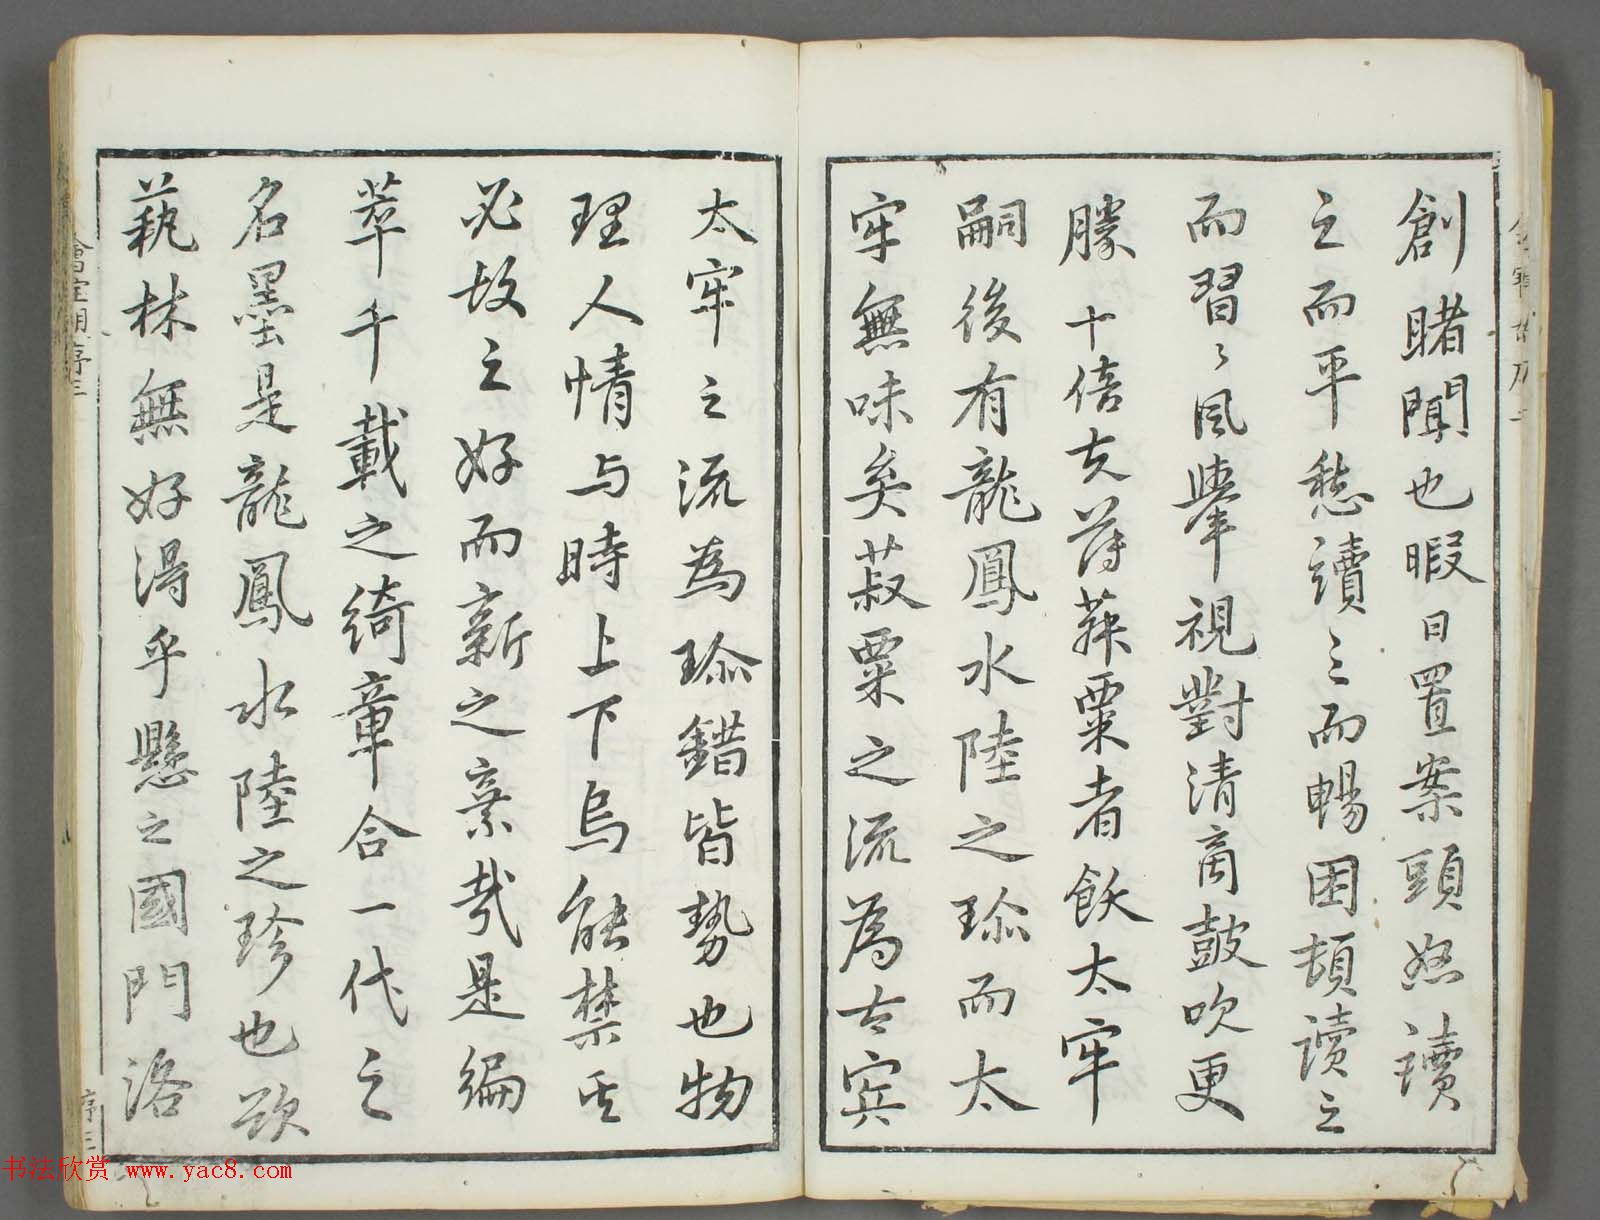 創睹聞也暇日置案頭怒讀
之而平愁讀之而暢困頓讀之
而習習風舉視對清商鼓吹更
勝十倍夫薄菽粟者飫太牢
嗣後有龍鳳水陸之珎而太
牢無味矣菽粟之流為古賓
太牢之流為珎錯皆勢也物
理人情与時上下烏能禁其
必故之好而新之棄哉是編
萃千載之綺章合一代之
名墨是龍鳳水陸之珍也欲
蓺林無好得乎懸之國門洛
序三
书法欣赏 www.yac8.com